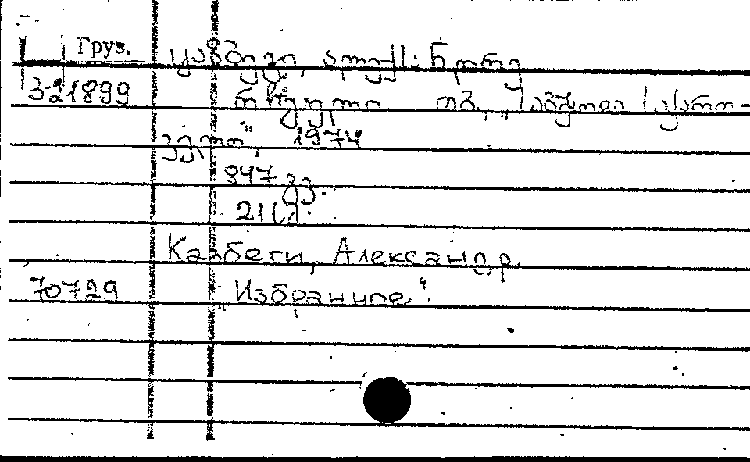 Груз.
ყაზბეგი, ალექსანდრე
321899
რჩეული თბ., „საბჭოთა საქართ-
ველო", 1974
847 გვ.
Казбеги, Александр
70729
„Избранное"